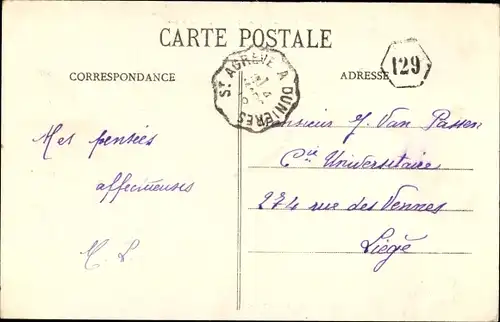 CARTE POSTALE
CORRESPONDANCE
ADRESSE
129
ST AGRÈVE A DUNIÈRES
Mes pensées
affectueuses
M. L.
Monsieur J. Van Passen
Cie Universitaire
274 rue des Vennes
Liège